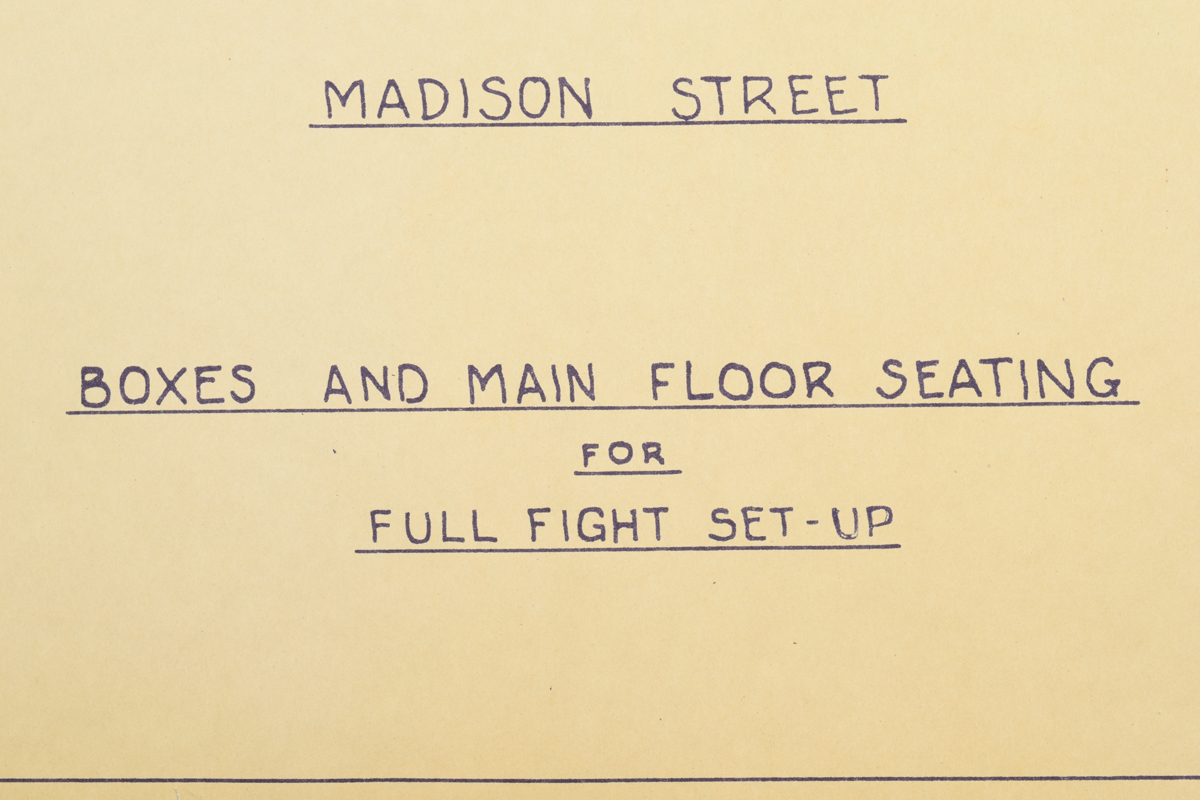 MADISON STREET
BOXES AND MAIN FLOOR SEATING
FOR
FULL FIGHT SET-UP